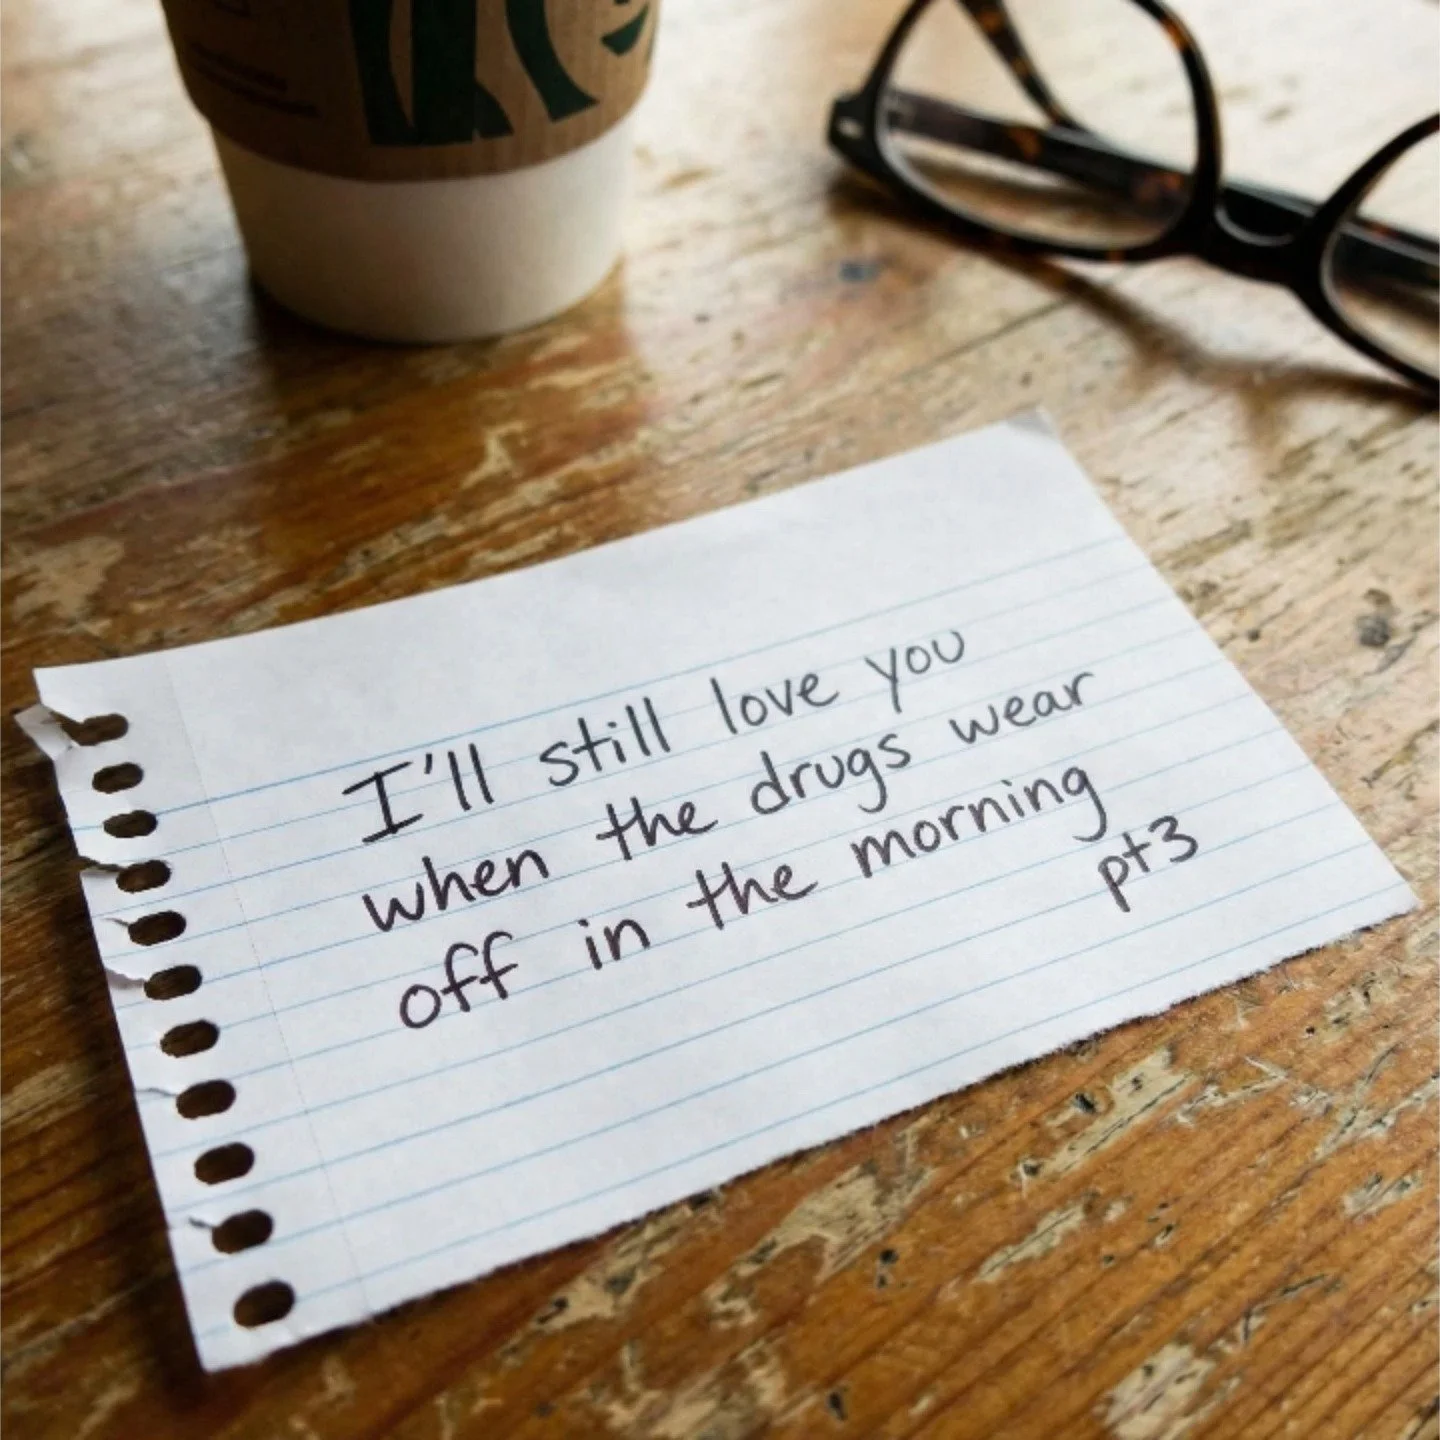 I'll still love you
when the drugs wear
off in the morning
pt3